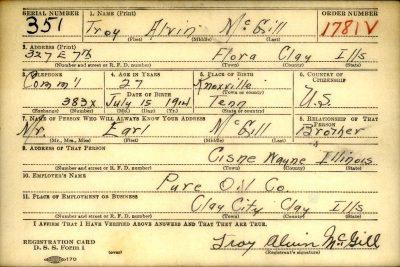 SERIAL NUMBER 1. NAME (Print) ORDER NUMBER
351 Troy Alvin McGill 1781V
(First) (Middle) (Last)
2. ADDRESS (Print)
327 E 7th Flora Clay Ills
(Number and street or R. F. D. number) (Town) (County) (State)
3. TELEPHONE 4. AGE IN YEARS 5. PLACE OF BIRTH 6. COUNTRY OF CITIZENSHIP
Comm'l 27 Knoxville
DATE OF BIRTH (Town or county) U.S.
383X July 15 1914 Tenn
(Exchange) (Number) (Mo.) (Day) (Yr.) (State or country)
7. NAME OF PERSON WHO WILL ALWAYS KNOW YOUR ADDRESS 8. RELATIONSHIP OF THAT PERSON
Mr. Earl McGill Brother
(Mr., Mrs., Miss) (First) (Middle) (Last)
9. ADDRESS OF THAT PERSON
Cisne Wayne Illinois
(Number and street or R. F. D. number) (Town) (County) (State)
10. EMPLOYER'S NAME
Pure Oil Co.
11. PLACE OF EMPLOYMENT OR BUSINESS
Clay City Clay Ills
(Number and street or R. F. D. number) (Town) (County) (State)
I AFFIRM THAT I HAVE VERIFIED ABOVE ANSWERS AND THAT THEY ARE TRUE.
REGISTRATION CARD
D. S. S. Form 1 Troy Alvin McGill
(Registrant's signature)